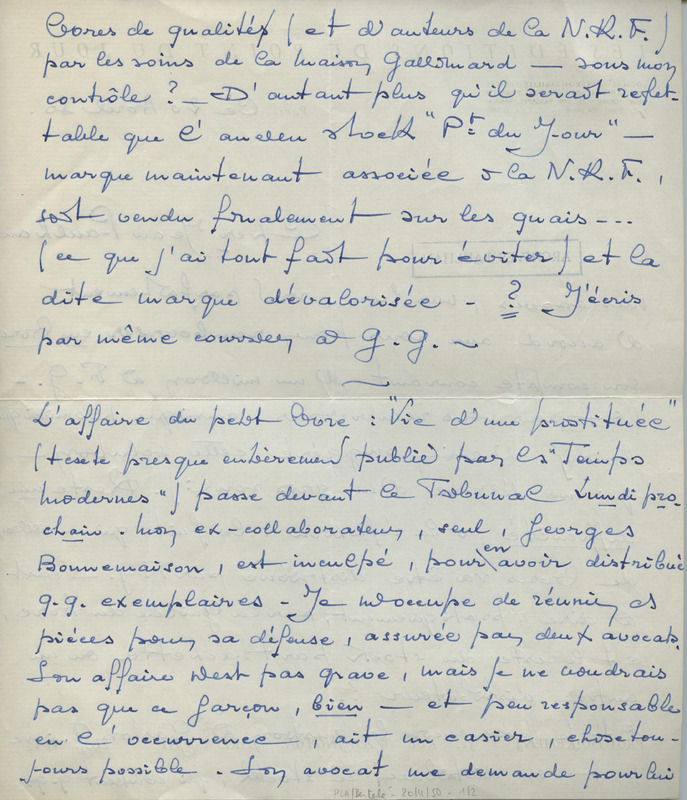 livres de qualités (et d'auteurs de la N.R.F.)
par les soins de la maison Gallimard — sous mon
contrôle ? — D'autant plus qu'il serait regret-
table que l'ancien stock "Pt du Jour" —
marque maintenant associée à la N.R.F.,
soit vendu finalement sur les quais ---
(ce que j'ai tout fait pour éviter) et la
dite marque dévalorisée - ? J'écris
par même courrier à G.G. ~
L'affaire du petit livre : "Vie d'une prostituée"
(texte presque entièrement publié par les "Temps
Modernes") passe devant le Tribunal Lundi pro-
chain. Mon ex-collaborateur, seul, Georges
Bonnemaison, est inculpé, pour en avoir distribué
q.q. exemplaires - Je m'occupe de réunir les
pièces pour sa défense, assurée par deux avocats.
Son affaire n'est pas grave, mais je ne voudrais
pas que ce garçon, bien — et peu responsable
en l'occurrence, ait un casier, chose tou-
jours possible. Son avocat me demande pour lui
PLH/Bertelé - 20/11/50 - 1/2